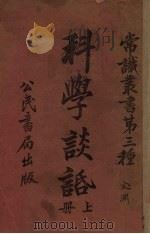 常識叢書第三種
科學談話
上冊
公民書局出版